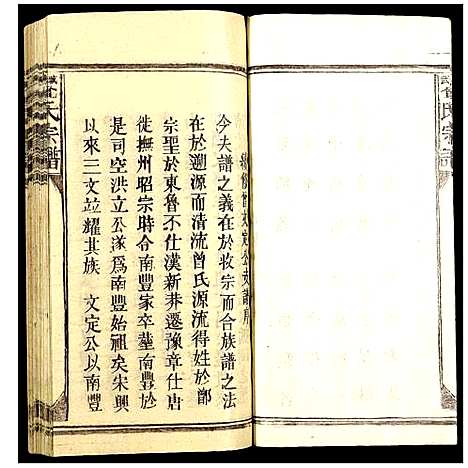 今夫譜之義在於收宗而合族譜之法
在於遡源而清流曾氏源流得姓於鄫
宗聖於東魯不仕漢新莽遷豫章仕唐
徙撫州昭宗時令南豐家卒塟南豐於
是司空洪立公遂爲南豐始祖矣宋興
以來三文竝耀其族　文定公以南豐
氏宗譜
氏宗譜